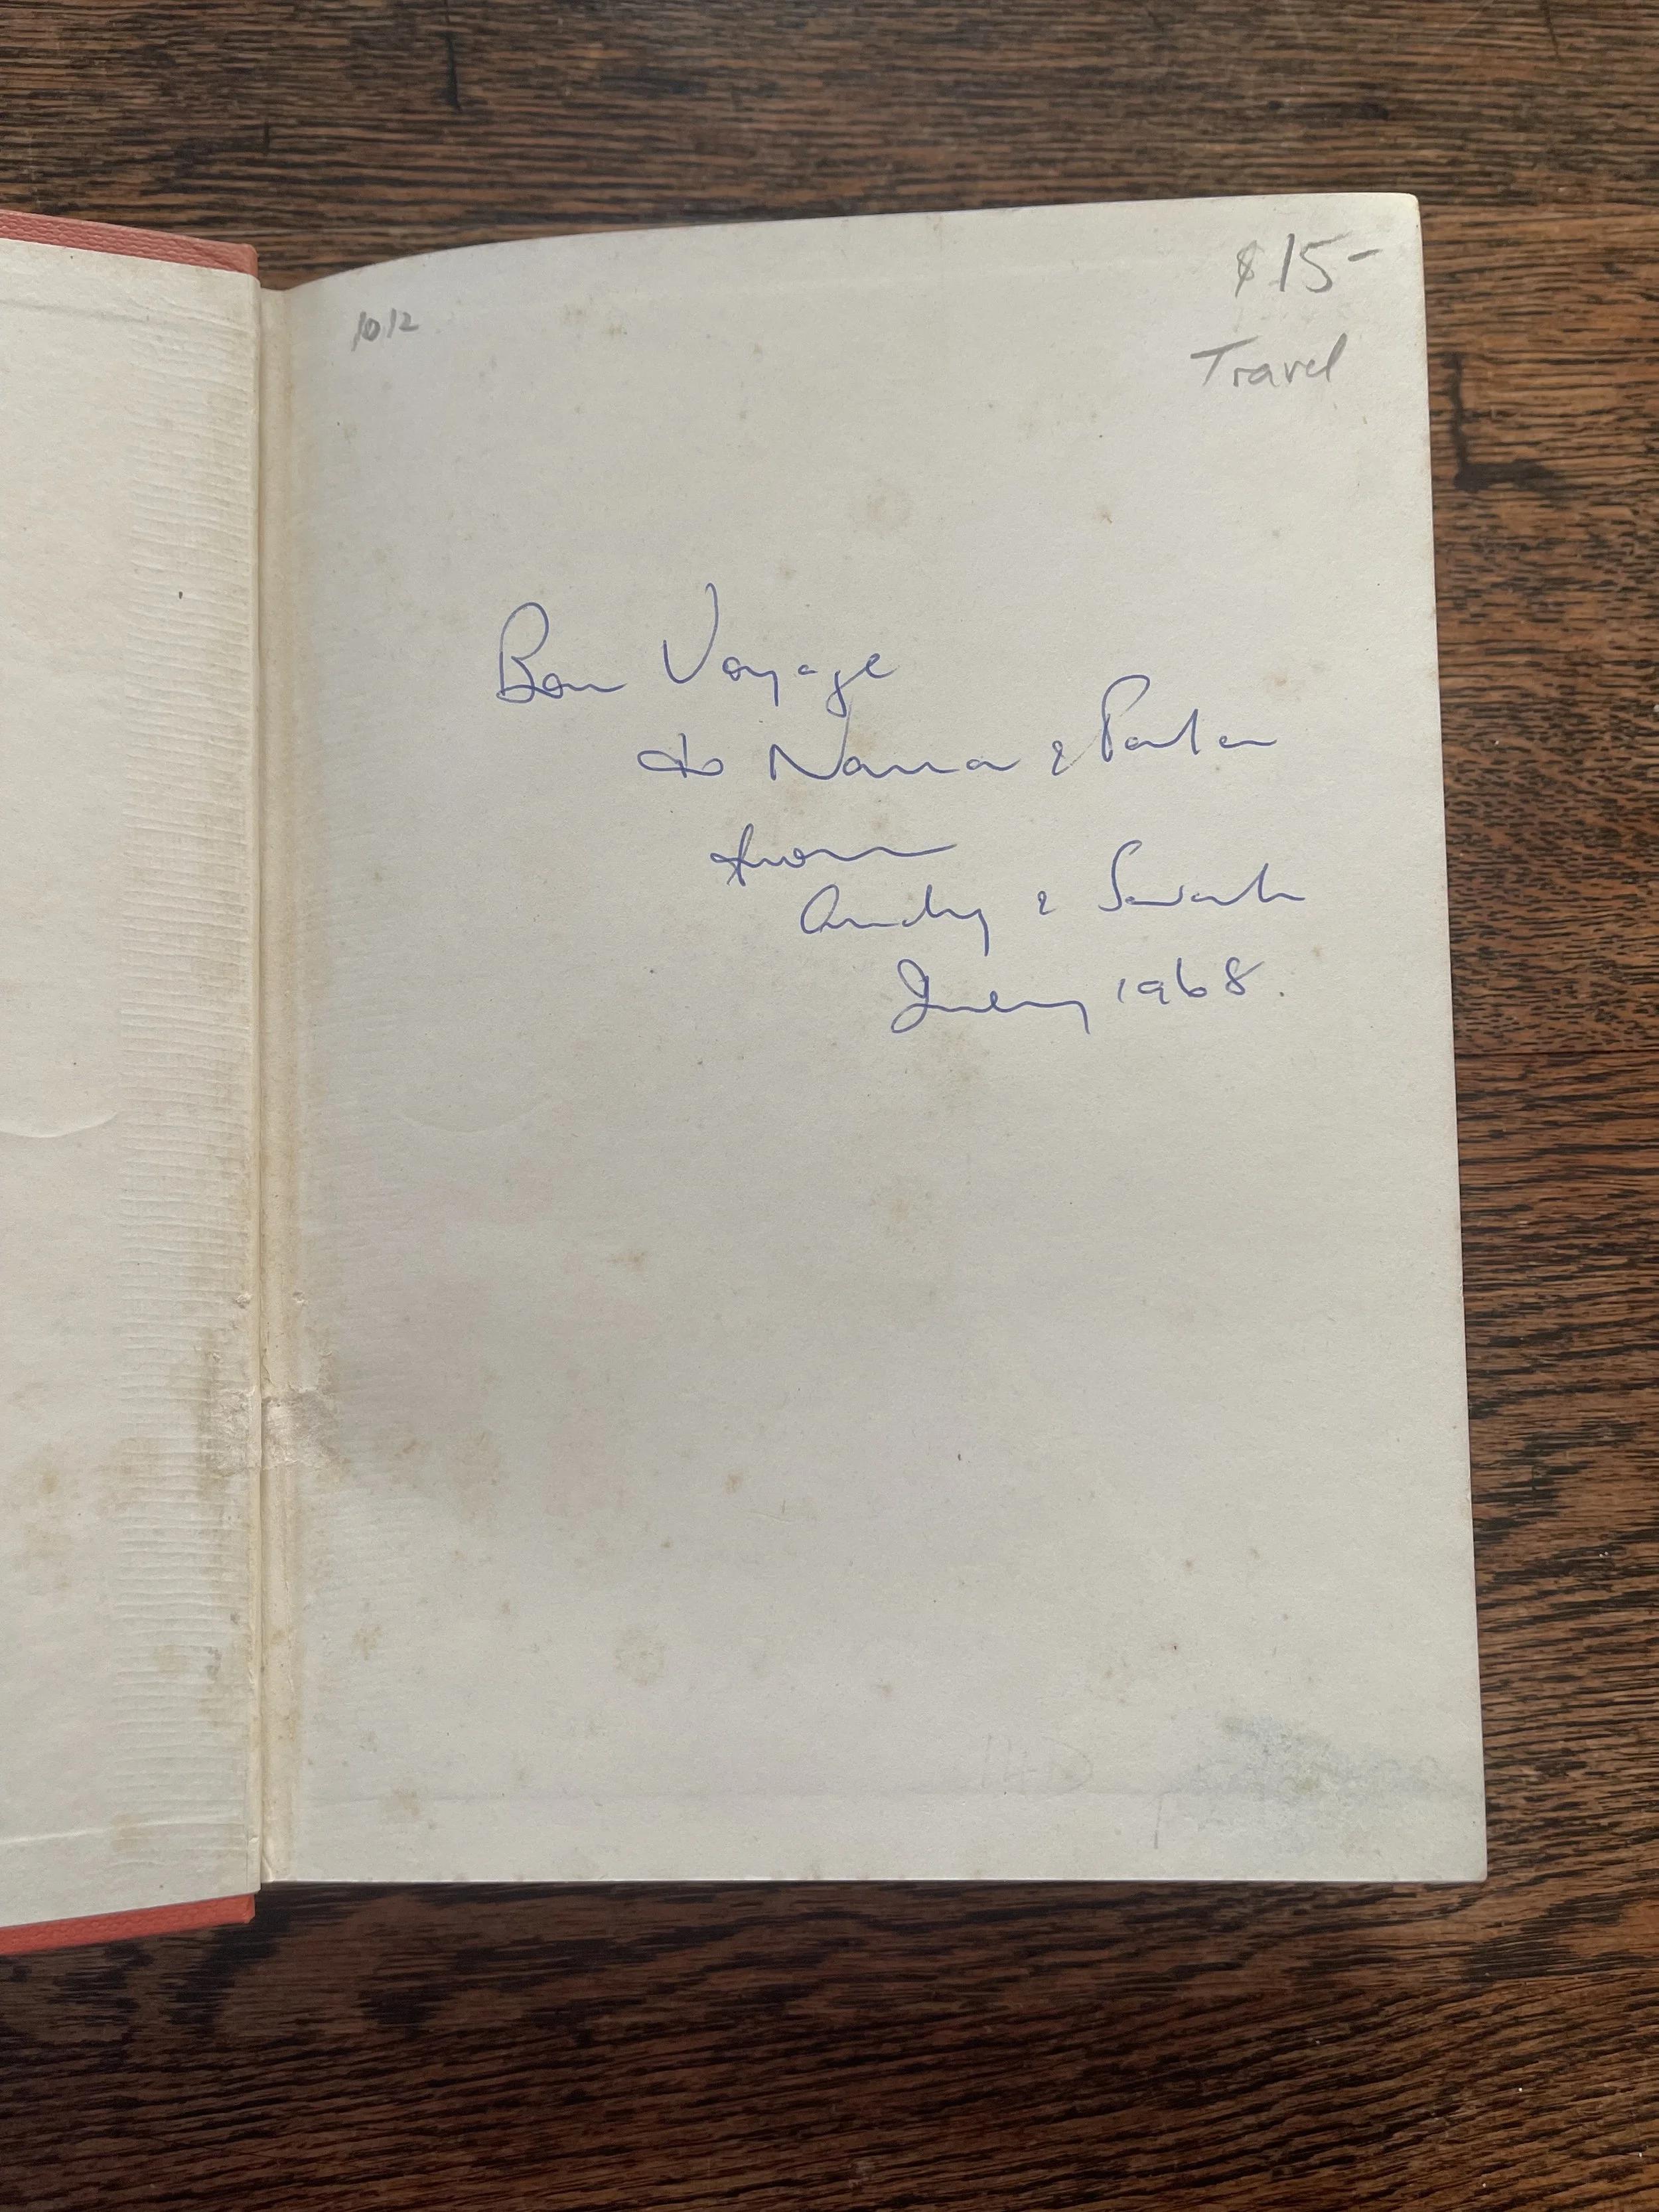 10/2
$15-
Travel
Bon Voyage
to Nana &
from
Andy & Sarah
July 1968.